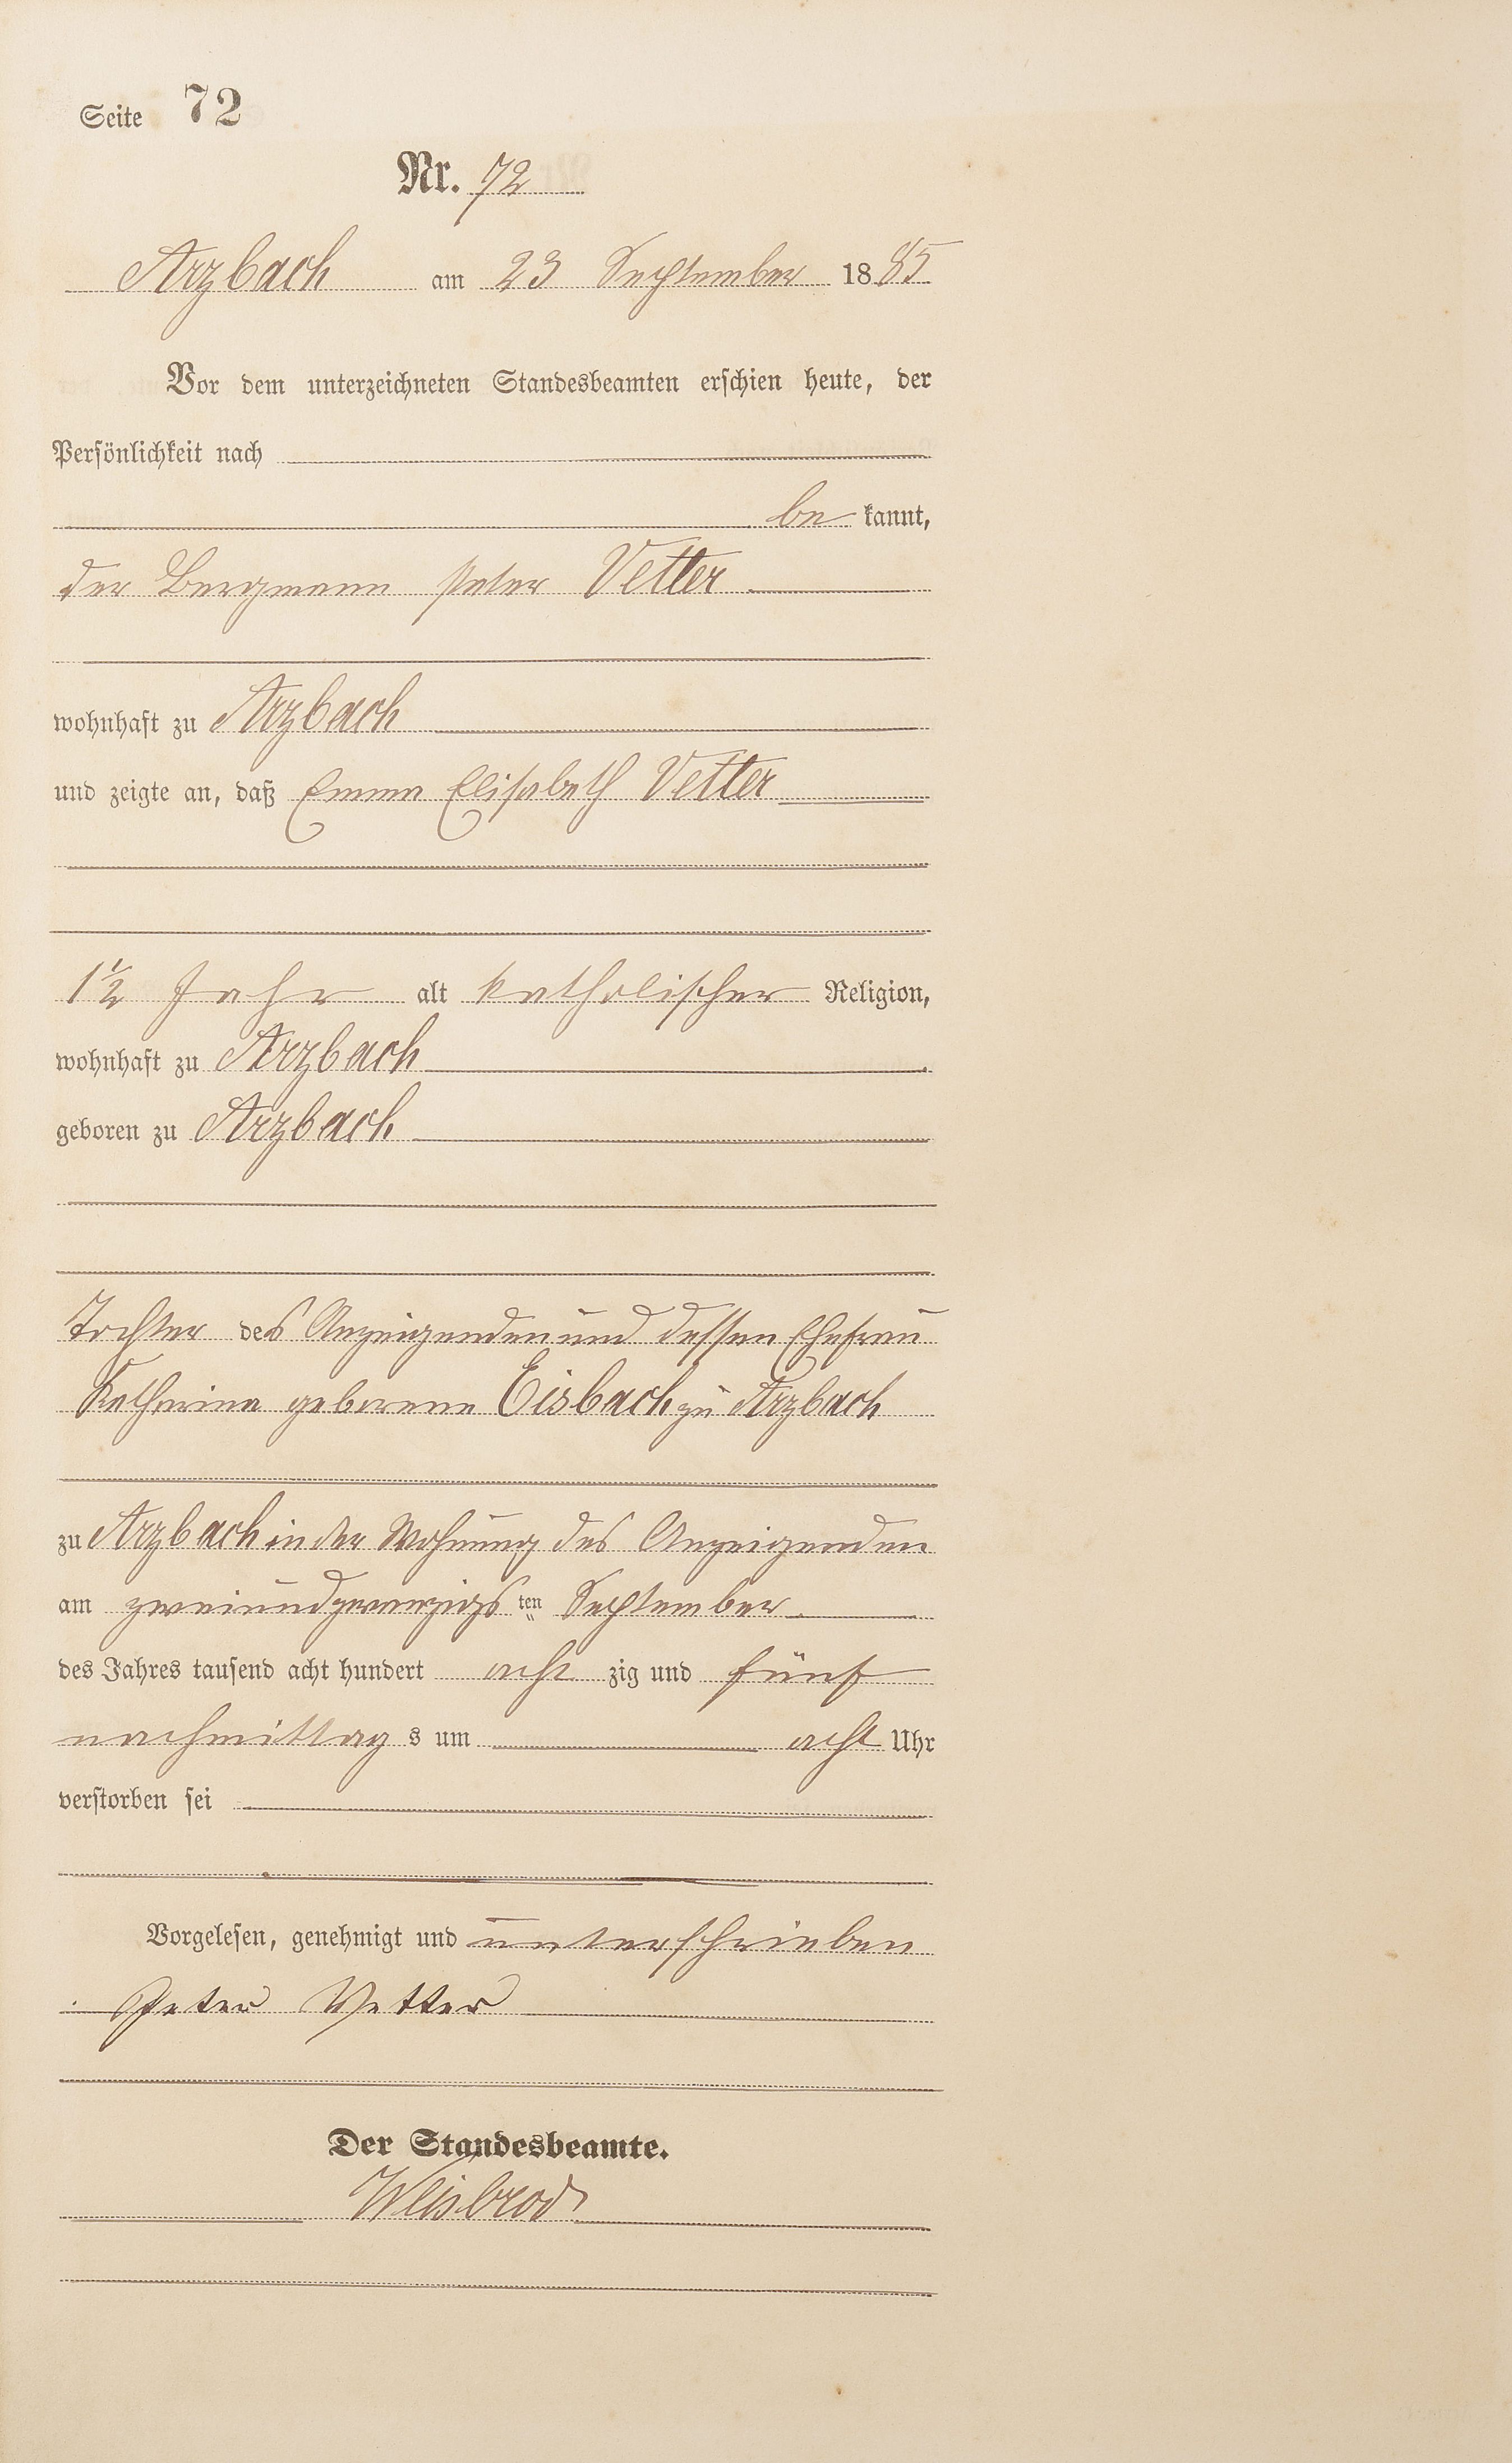 Seite 72
Nr. 72
Arzbach am 23 September 1885
Vor dem unterzeichneten Standesbeamten erschien heute, der
Persönlichkeit nach
be kannt,
der Bergmann Peter Vetter
wohnhaft zu Arzbach
und zeigte an, daß Emma Elisabeth Vetter
1½ Jahr alt katholischer Religion,
wohnhaft zu Arzbach
geboren zu Arzbach
Tochter des Anzeigenden und dessen Ehefrau
Katharina geborene Eisbach zu Arzbach
zu Arzbach in der Wohnung des Anzeigenden
am zweiundzwanzigs ten September
des Jahres tausend acht hundert acht zig und fünf
nachmittag s um acht Uhr
verstorben sei
Vorgelesen, genehmigt und unterschrieben
Peter Vetter
Der Standesbeamte.
Weisbrod